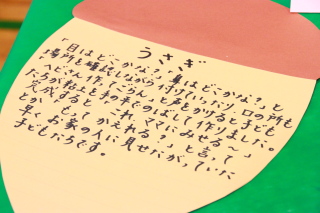 うさぎ
「目はどこかな？、鼻はどこかな？」と
場所を確認しながら付けていったり、口の所も
「へびさん作ってごらん」と声をかけると子ども
たちが粘土を手の平でのばして作りました。
完成すると「これ、ママにみせる～」
とか「もってかえれる？」と言って
早くお家の人に見せたがっていた
子どもたちです。